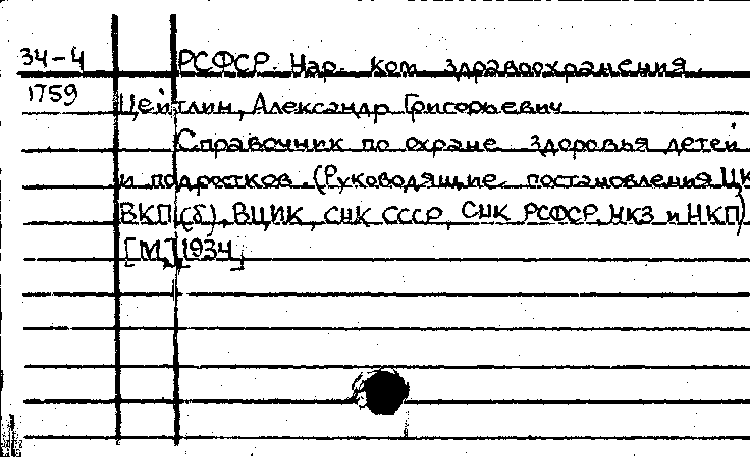 34-4 РСФСР. Нар. ком. здравоохранения.
1759 Цейтлин, Александр Григорьевич
Справочник по охране здоровья детей
и подростков. (Руководящие постановления ЦК
ВКП(б), ВЦИК, СНК СССР, СНК РСФСР, НКЗ и НКП)
[М.] [1934]